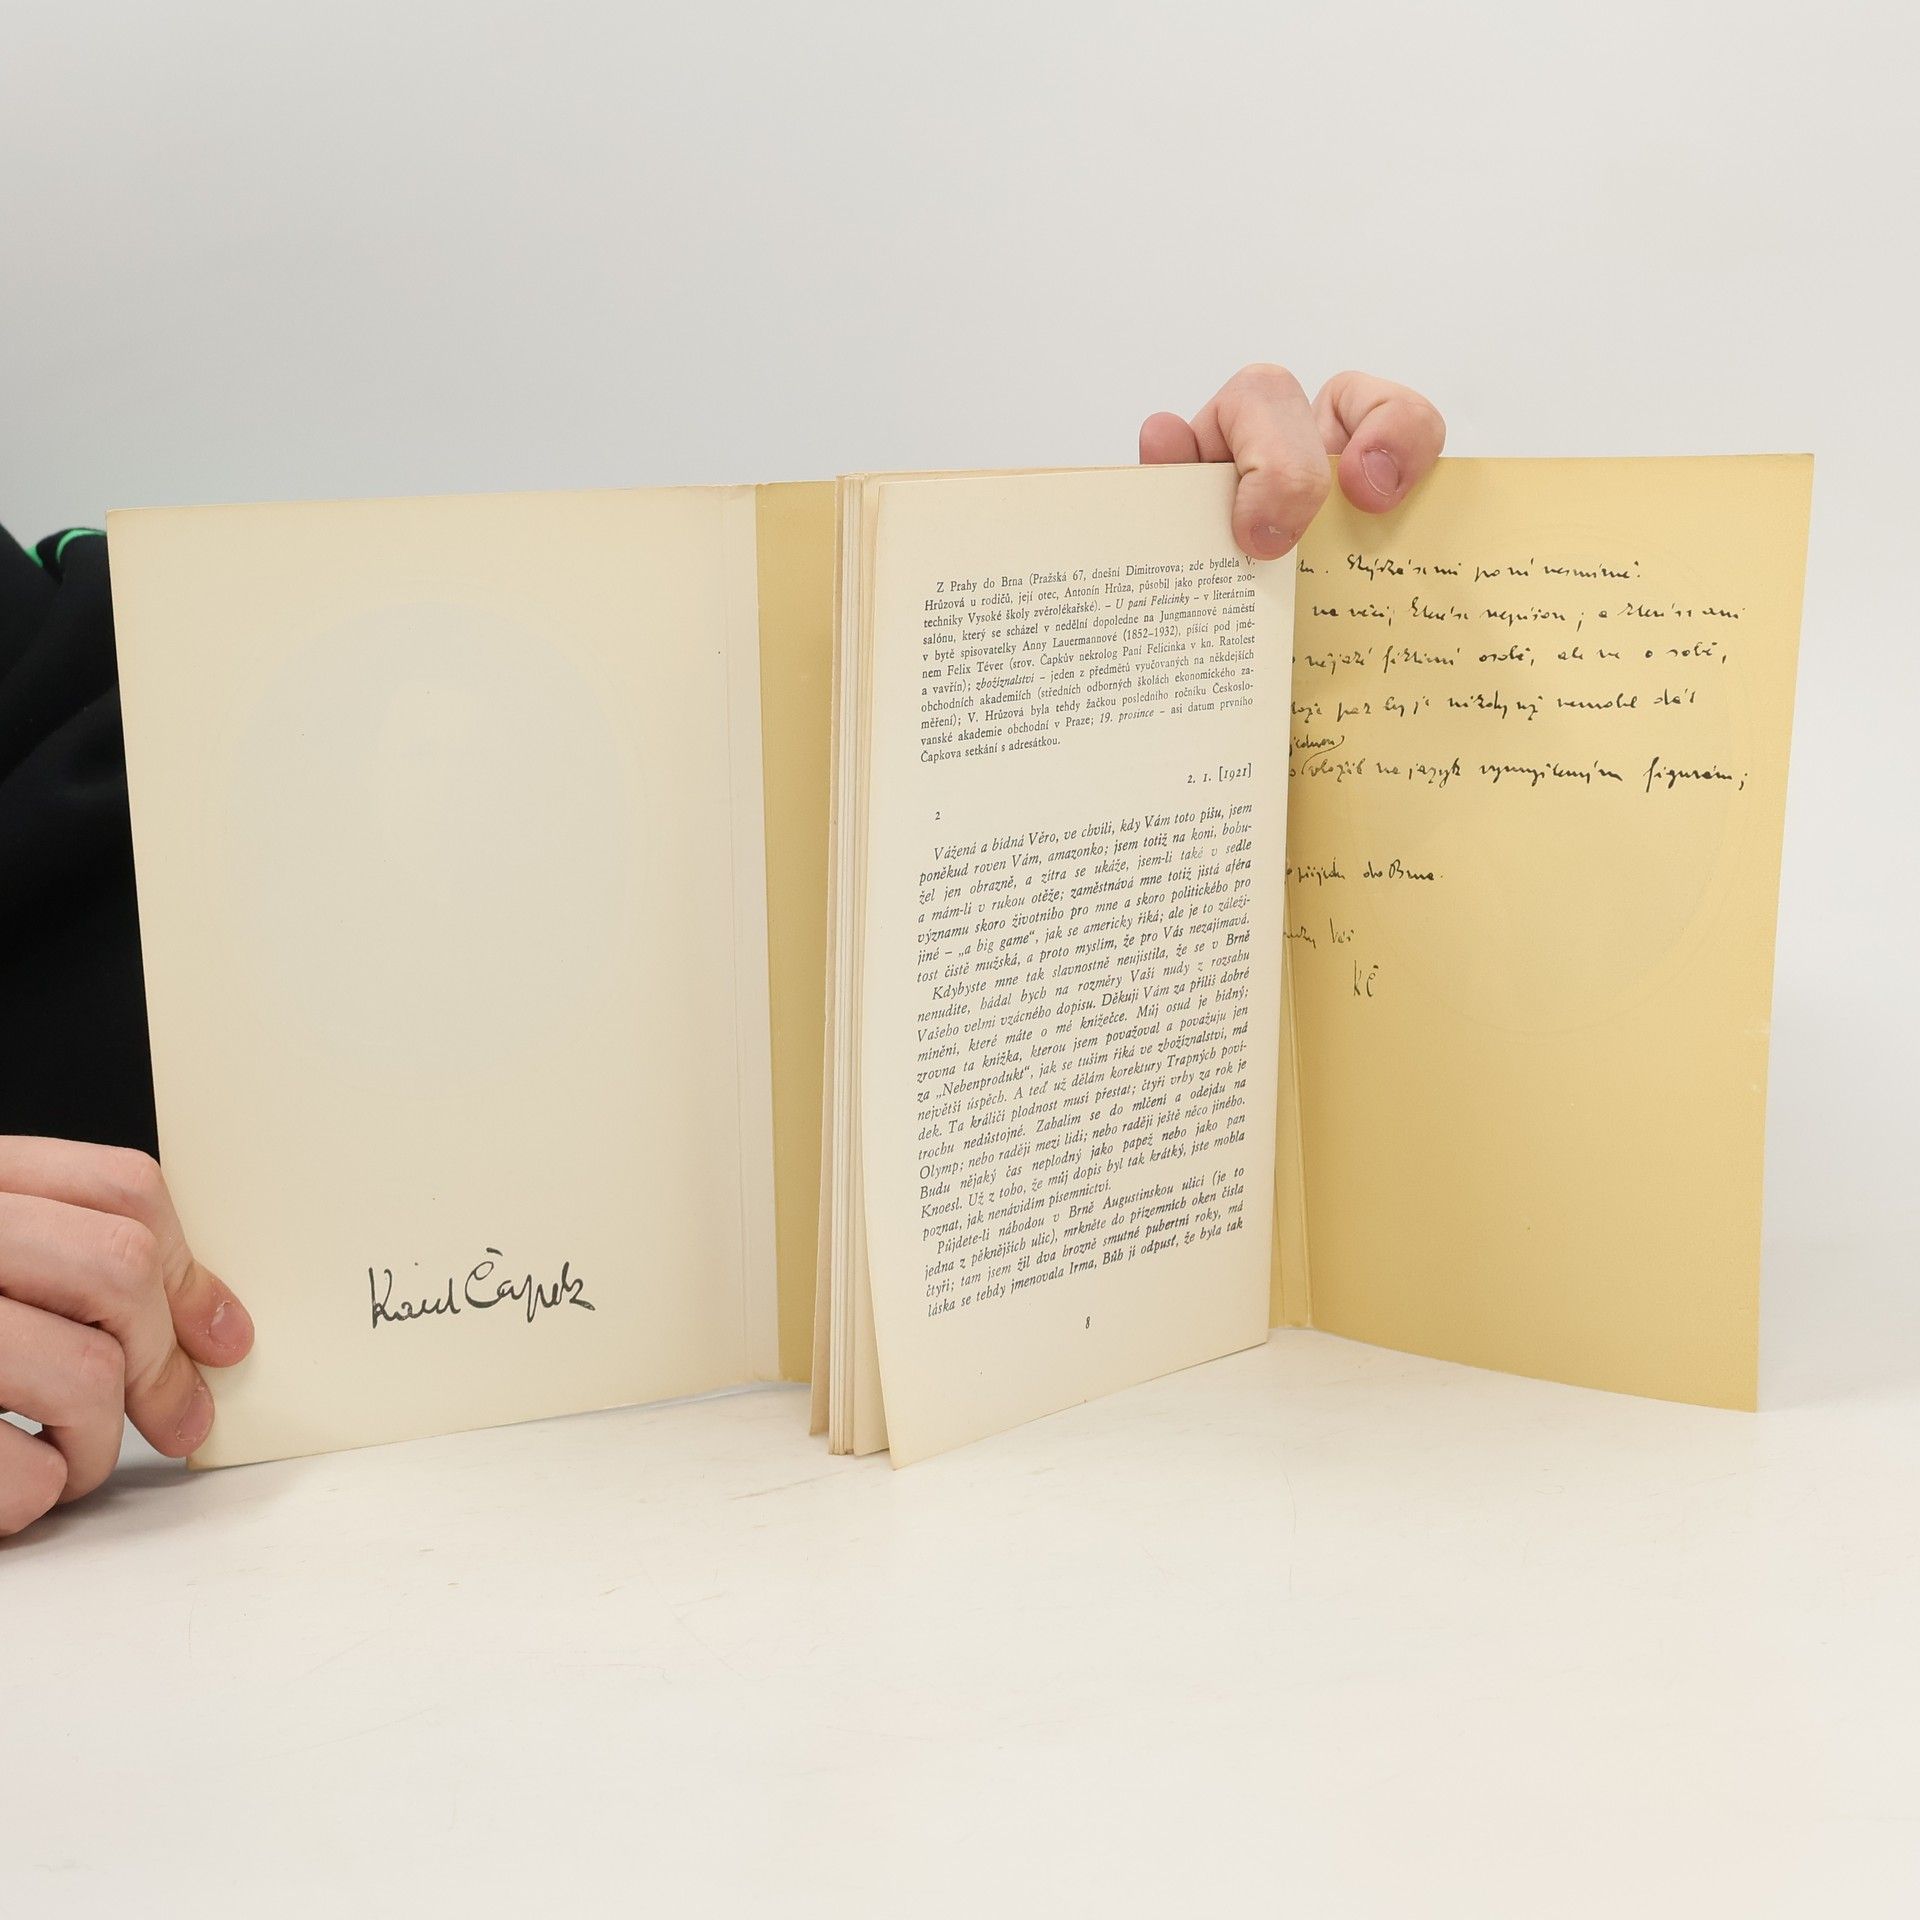 Karel Čapek
Z Prahy do Brna (Pražská 67, dnešní Dimitrovova; zde bydlela V.
Hrůzová u rodičů, její otec, Antonín Hrůza, působil jako profesor zoo-
techniky Vysoké školy zvěrolékařské). – U paní Felicinky – v literárním
salónu, který se scházel v nedělní dopoledne na Jungmannově náměstí
v bytě spisovatelky Anny Lauermannové (1852–1932), píšící pod jmé-
nem Felix Téver (srov. Čapkův nekrolog Paní Felicinka v kn. Ratolest
a vavřín); zbožíznalství – jeden z předmětů vyučovaných na někdejších
obchodních akademiích (středních odborných školách ekonomického za-
měření); V. Hrůzová byla tehdy žačkou posledního ročníku Českoslo-
vanské akademie obchodní v Praze; 19. prosince – asi datum prvního
Čapkova setkání s adresátkou.
2. 1. [1921]
2
Vážená a bídná Věro, ve chvíli, kdy Vám toto píšu, jsem
poněkud roven Vám, amazonko; jsem totiž na koni, bohu-
žel jen obrazně, a zítra se ukáže, jsem-li také v sedle
a mám-li v rukou otěže; zaměstnává mne totiž jistá aféra
významu skoro životního pro mne a skoro politického pro
jiné – „a big game“, jak se americky říká; ale je to záleži-
tost čistě mužská, a proto myslím, že pro Vás nezajímavá.
Kdybyste mne tak slavnostně neujistila, že se v Brně
nenudíte, hádal bych na rozměry Vaší nudy z rozsahu
Vašeho velmi vzácného dopisu. Děkuji Vám za příliš dobré
mínění, které máte o mé knížečce. Můj osud je bídný;
zrovna ta knížka, kterou jsem považoval a považuju jen
za „Nebenprodukt“, jak se tuším říká ve zbožíznalství, má
největší úspěch. A teď už dělám korektury Trapných poví-
dek. Ta králičí plodnost musí přestat; čtyři vrhy za rok je
trochu nedůstojné. Zahalím se do mlčení a odejdu na
Olymp; nebo raději mezi lidi; nebo raději ještě něco jiného.
Budu nějaký čas neplodný jako papež nebo jako pan
Knoesl. Už z toho, že můj dopis byl tak krátký, jste mohla
poznat, jak nenávidím písemnictví.
Půjdete-li náhodou v Brně Augustinskou ulicí (je to
jedna z pěknějších ulic), mrkněte do přízemních oken čísla
čtyři; tam jsem žil dva hrozně smutné pubertní roky, má
láska se tehdy jmenovala Irma, Bůh jí odpusť, že byla tak
8
. Stýská se mi po ní nesmírně.
na věci, které se nepíšou; a které se ani
nějaké fiktivní osobě, ale ne o sobě,
pak by je nikdy už nemohl dát
jednou
vložil na jazyk vymyšleným figurám;
přijedu do Brna.
Váš
KČ